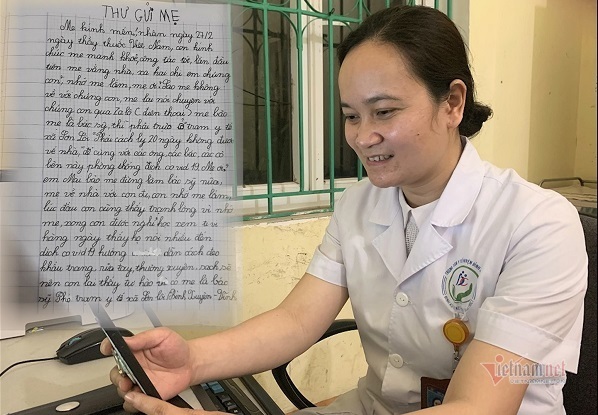 THƯ GỬI MẸ
Mẹ kính mến, nhân ngày 27/2
ngày thầy thuốc Việt Nam, con kính
chúc mẹ mạnh khoẻ, công tác tốt, lần đầu
tiên mẹ vắng nhà, xa hai chị em chúng
con, nhớ mẹ lắm, mẹ ơi! Sao mẹ không
về với chúng con, mẹ lại nói chuyện với
chúng con qua Zalo (điện thoại) mẹ bảo
mẹ là bác sỹ, thì phải trực ở trạm y tế
xã Sơn Lôi. Phải cách ly 20 ngày không được
về nhà, để cùng với các ông, các bác, các cô
bên này phòng chống dịch covid 19. Mẹ ơi
em Nấu bảo mẹ đừng làm bác sỹ nữa,
mẹ về nhà với con đi, con nhớ mẹ lắm
lúc đầu con cũng thấy chạnh lòng vì nhớ
mẹ, song con được nghỉ học xem ti vi
hằng ngày thấy họ nói nhiều đến
dịch covid 19 hướng dẫn cách đeo
khẩu trang, rửa tay, thường xuyên, sạch sẽ
nên con lại thấy tự hào vì có mẹ là bác
sỹ Phó trạm y tế xã Sơn Lôi Bình Xuyên - Vĩnh
Vietnamnet